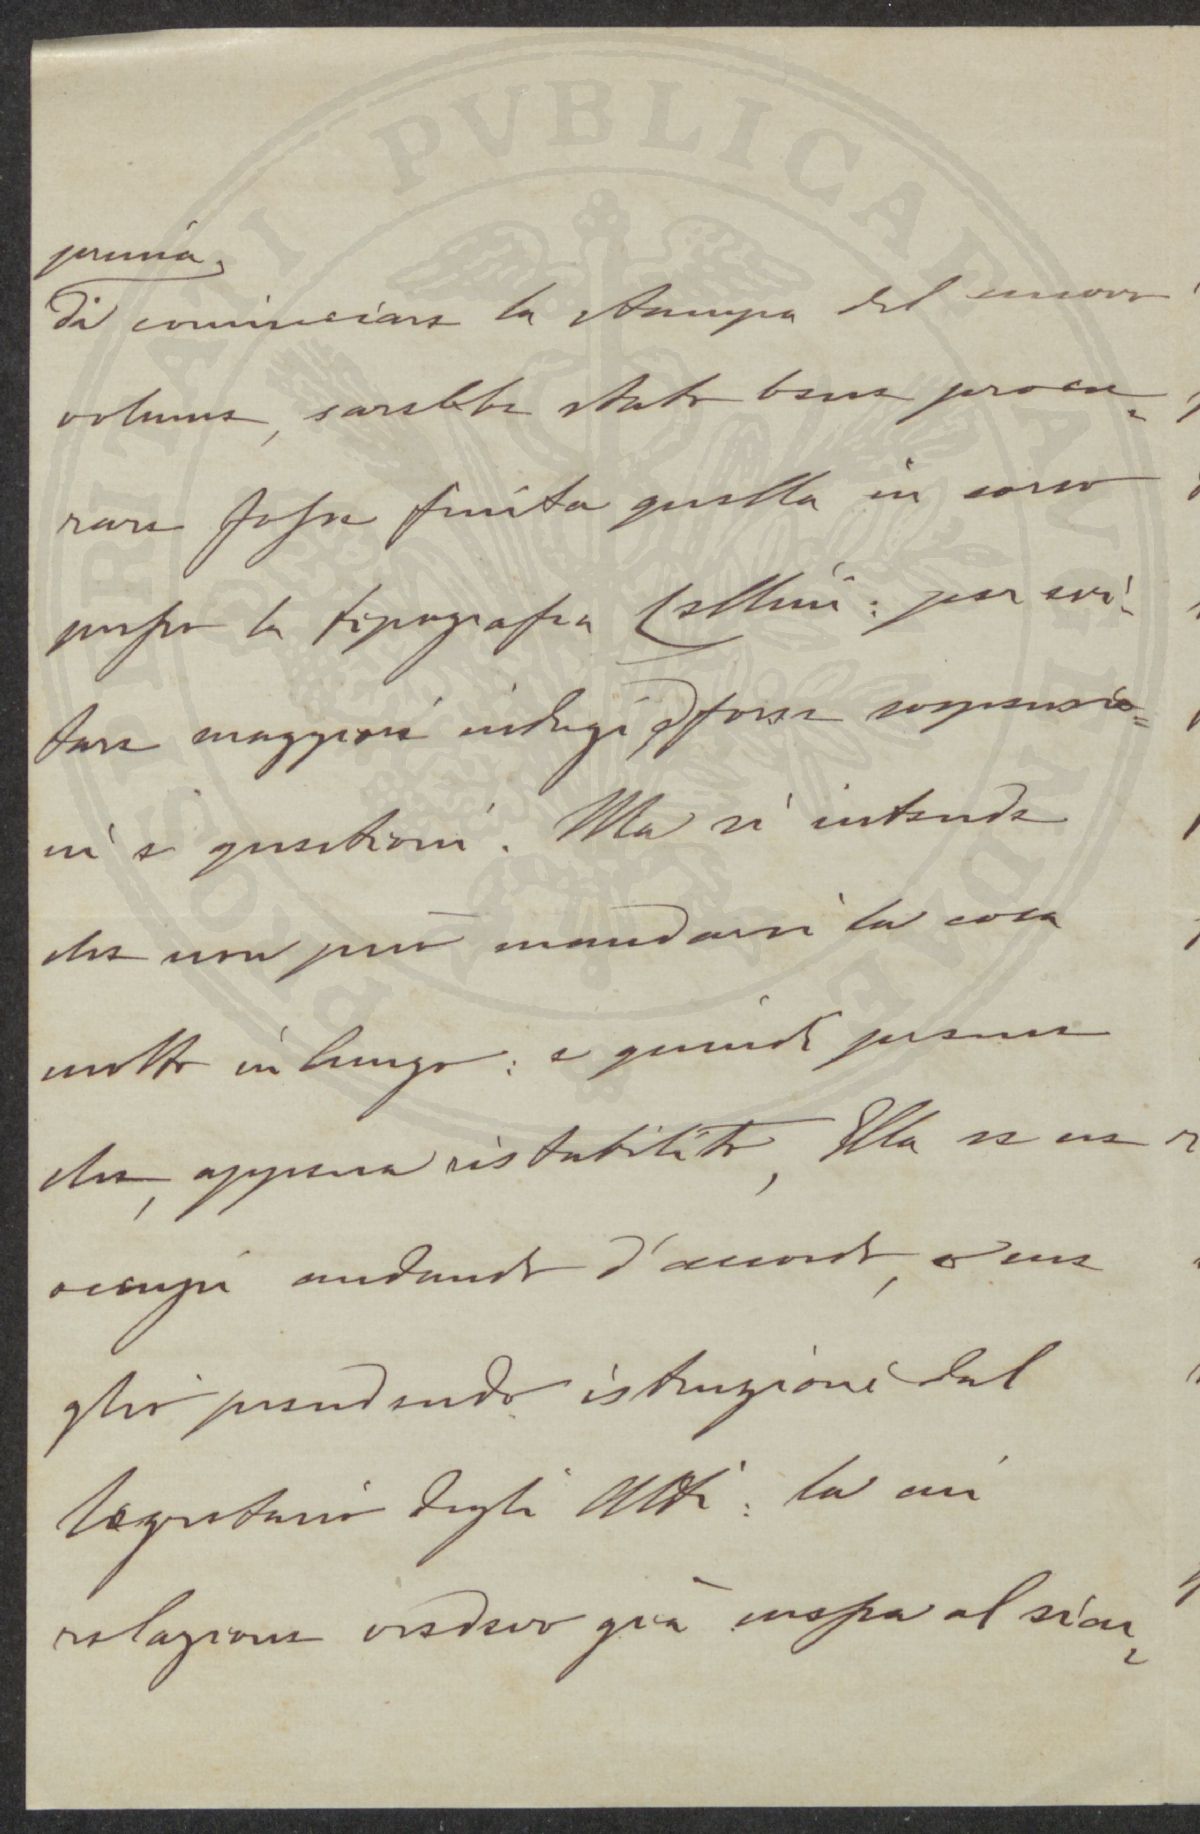 prima
di cominciare la stampa del nuovo
volume, sarebbe stato bene procu=
rare fosse finita quella in corso
presso la tipografia Cellini: per evi=
tare maggiori indugi, e forse sospensio=
ni e questioni. Ma si intende
che non può mandarsi la cosa
molto in lungo: e quindi preme
che, appena ristabilito, Ella se ne
occupi andando d'accordo, o me
glio prendendo istruzione dal
Segretario degli Atti: la cui
relazione vedevo già messa al sicu=
PROSPERITATI PVBLICAE AVGENDAE